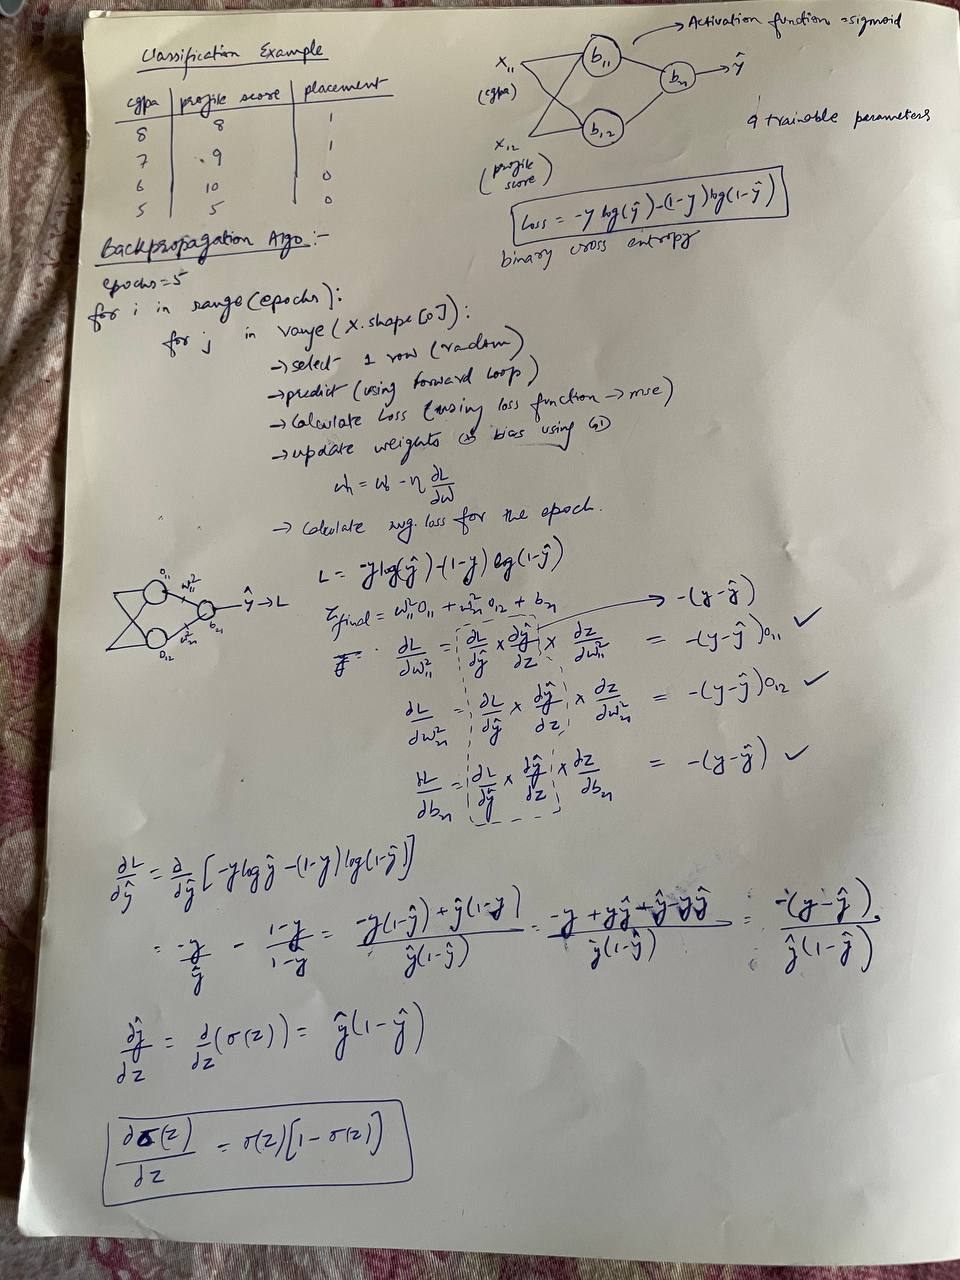 Classification Example
cgpa | profile score | placement
8 | 8 | 1
7 | 9 | 1
6 | 10 | 0
5 | 5 | 0
x₁₁ (cgpa)
x₁₂ (profile score)
b₁₁
b₁₂
b₂₁ → ŷ
→ Activation function = sigmoid
9 trainable parameters
Loss = -y log(ŷ) - (1-y) log(1-ŷ)
binary cross entropy
Backpropagation Algo :-
epochs = 5
for i in range(epochs):
for j in range(X.shape[0]):
→ select 1 row (random)
→ predict (using forward loop)
→ Calculate Loss (using loss function → mse)
→ update weights & bias using GD
Wₙ = W₀ - η ∂L/∂W
→ Calculate avg. loss for the epoch.
O₁₁ w²₁₁
O₁₂ w²₂₁ b₂₁ ŷ → L
L = -y log(ŷ) - (1-y) log(1-ŷ)
Z_final = w²₁₁O₁₁ + w²₂₁O₁₂ + b₂₁
→ -(y-ŷ)
∂L/∂w²₁₁ = ∂L/∂ŷ × ∂ŷ/∂z × ∂z/∂w²₁₁ = -(y-ŷ)O₁₁ ✓
∂L/∂w²₂₁ = ∂L/∂ŷ × ∂ŷ/∂z × ∂z/∂w²₂₁ = -(y-ŷ)O₁₂ ✓
∂L/∂b₂₁ = ∂L/∂ŷ × ∂ŷ/∂z × ∂z/∂b₂₁ = -(y-ŷ) ✓
∂L/∂ŷ = ∂/∂ŷ [-y log ŷ - (1-y) log(1-ŷ)]
= -y/ŷ - (1-y)/(1-y) = (-y(1-ŷ) + ŷ(1-y))/(ŷ(1-ŷ)) = (-y + yŷ + ŷ - yŷ)/(ŷ(1-ŷ)) = -(y-ŷ)/(ŷ(1-ŷ))
∂ŷ/∂z = ∂/∂z (σ(z)) = ŷ(1-ŷ)
∂σ(z)/∂z = σ(z)[1-σ(z)]